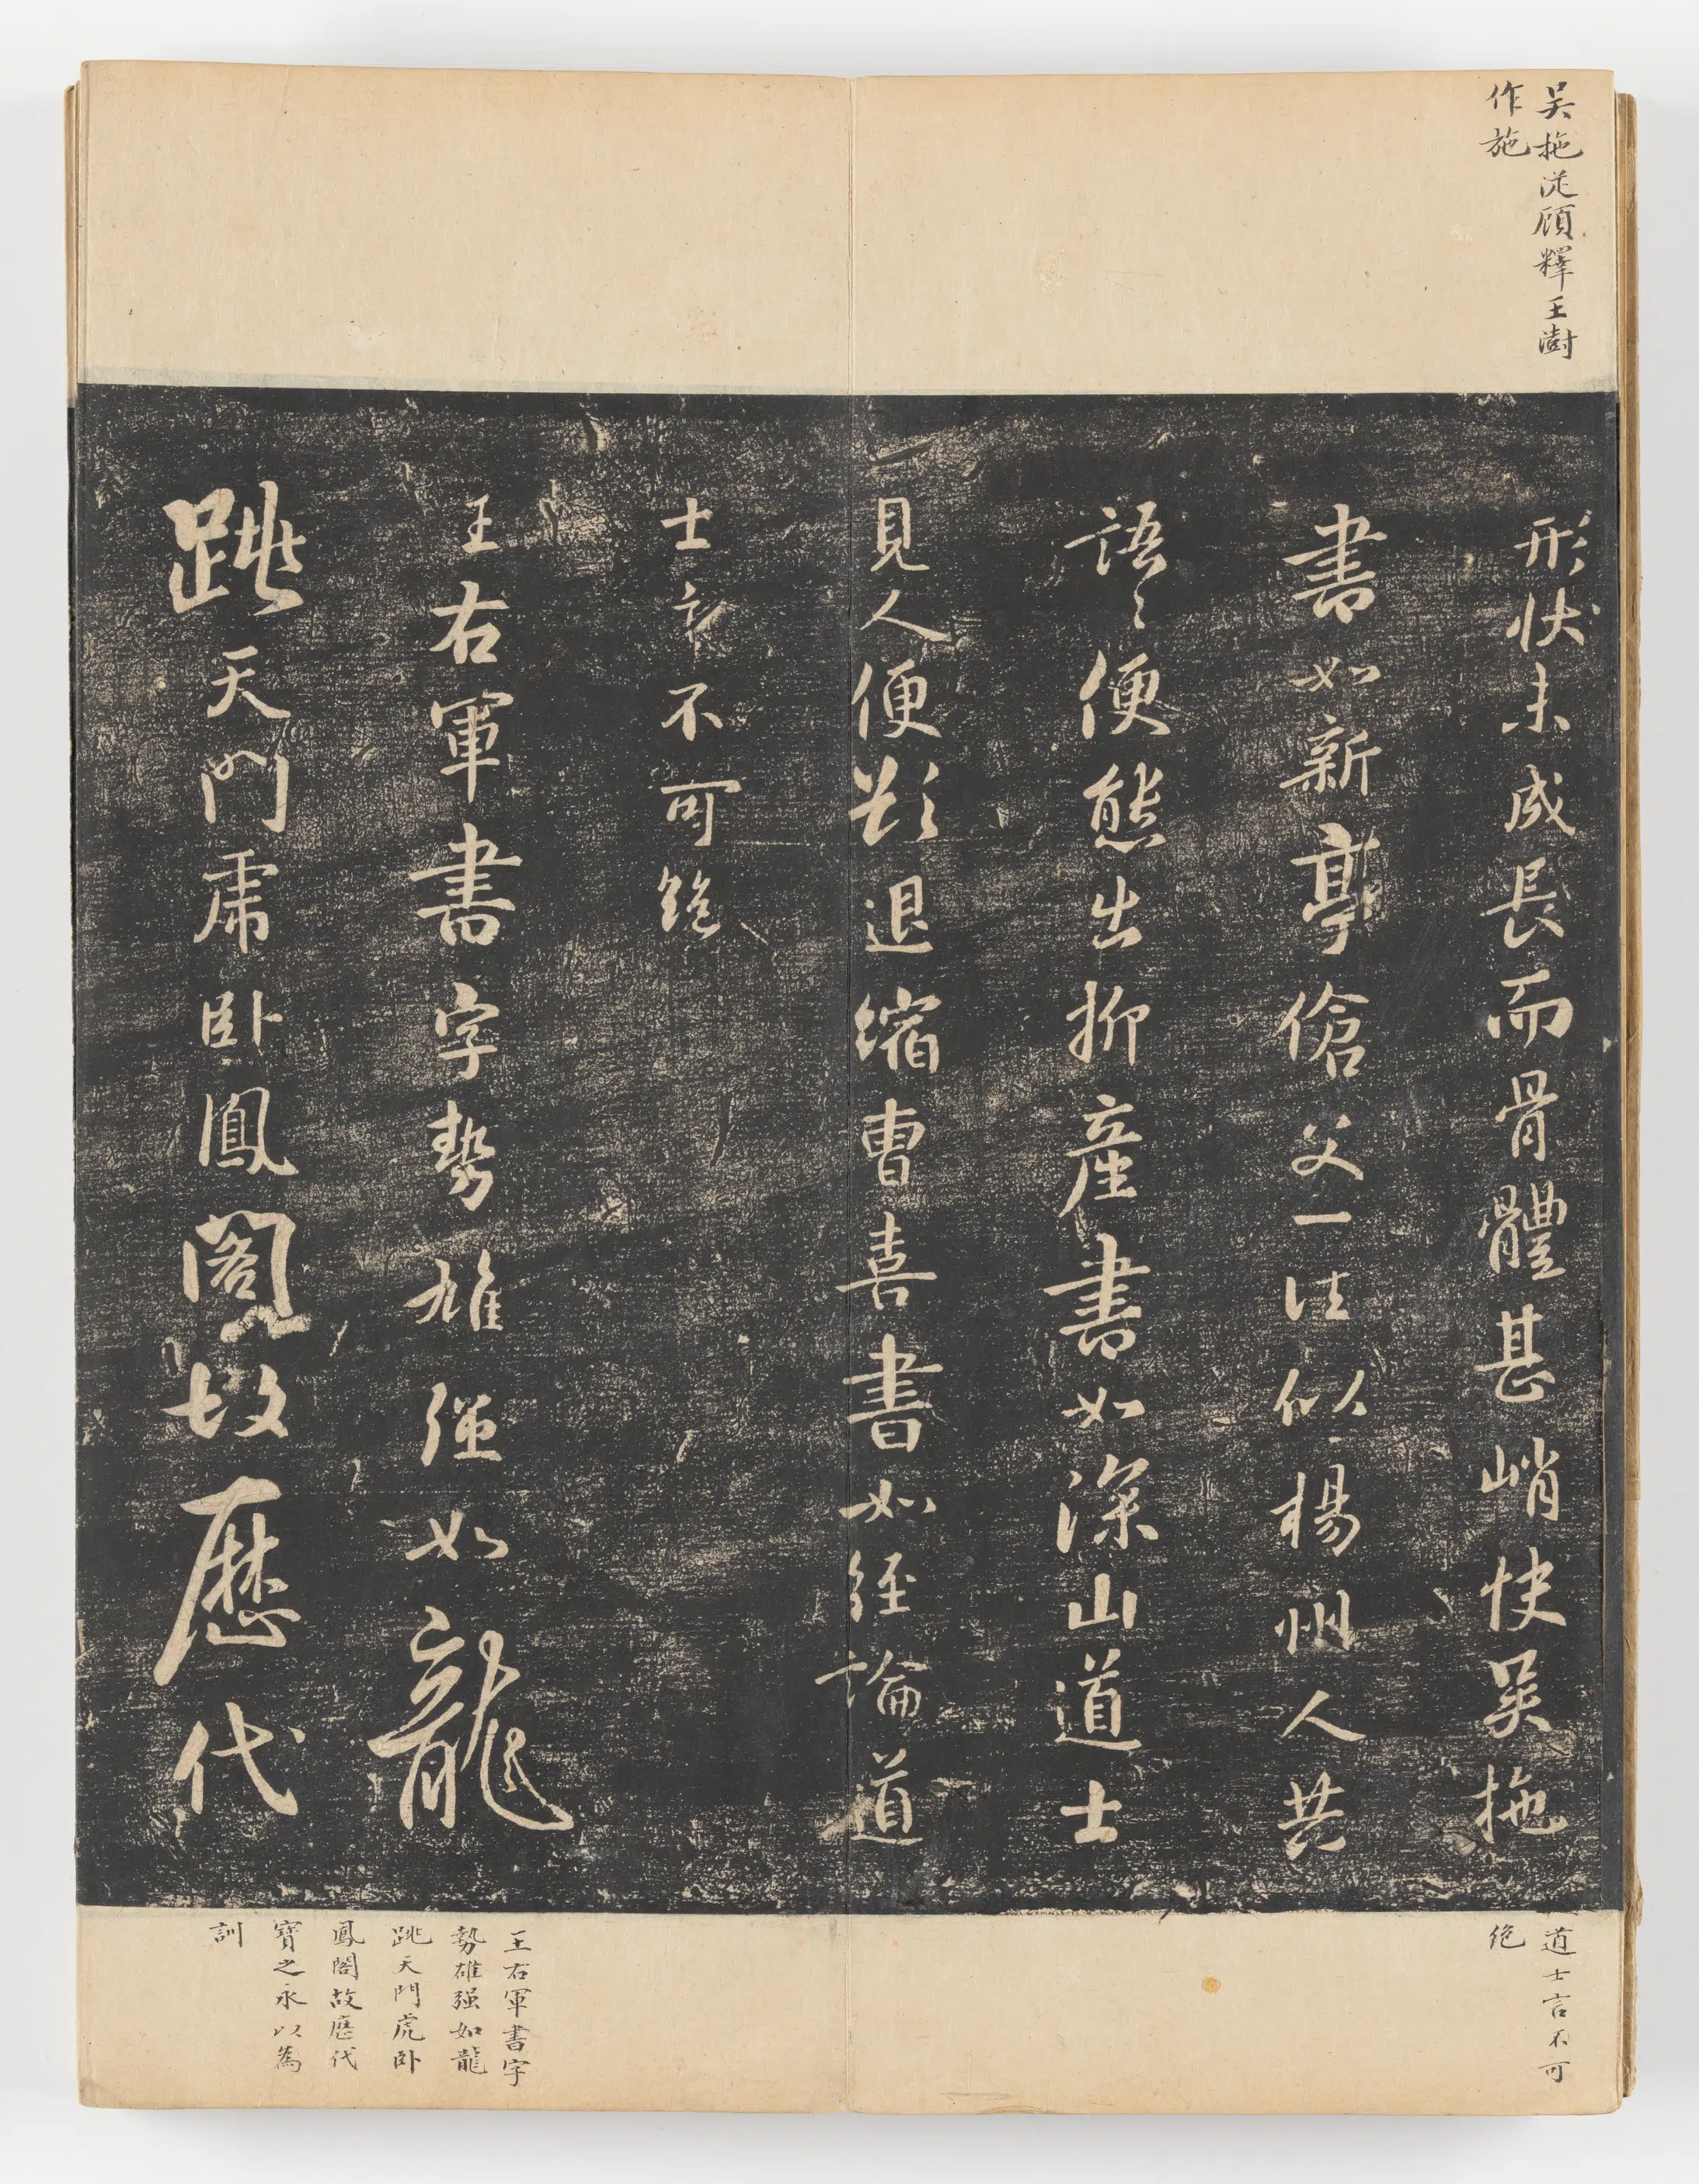 吴拖從顧釋王澍
作施
形狀未成長而骨體甚峭快吴拖
書如新亭傖父一往似楊州人共
語々便態出抑產書如深山道士
見人便欲退縮曹喜書如經論道
士言不可絶
王右軍書字勢雄强如龍
跳天門虎卧鳳閣故歷代
道士言不可
絶
王右軍書字
勢雄强如龍
跳天門虎卧
鳳閣故歷代
寶之永以為
訓